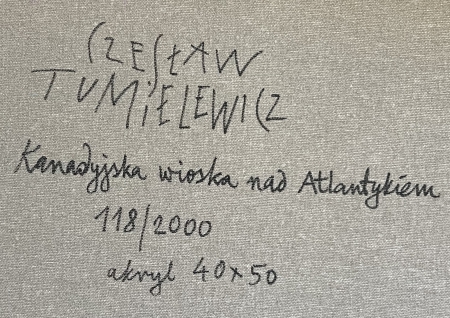 CZESŁAW
TUMiELEWICZ
Kanadyjska wioska nad Atlantykiem
118/2000
akryl 40x50